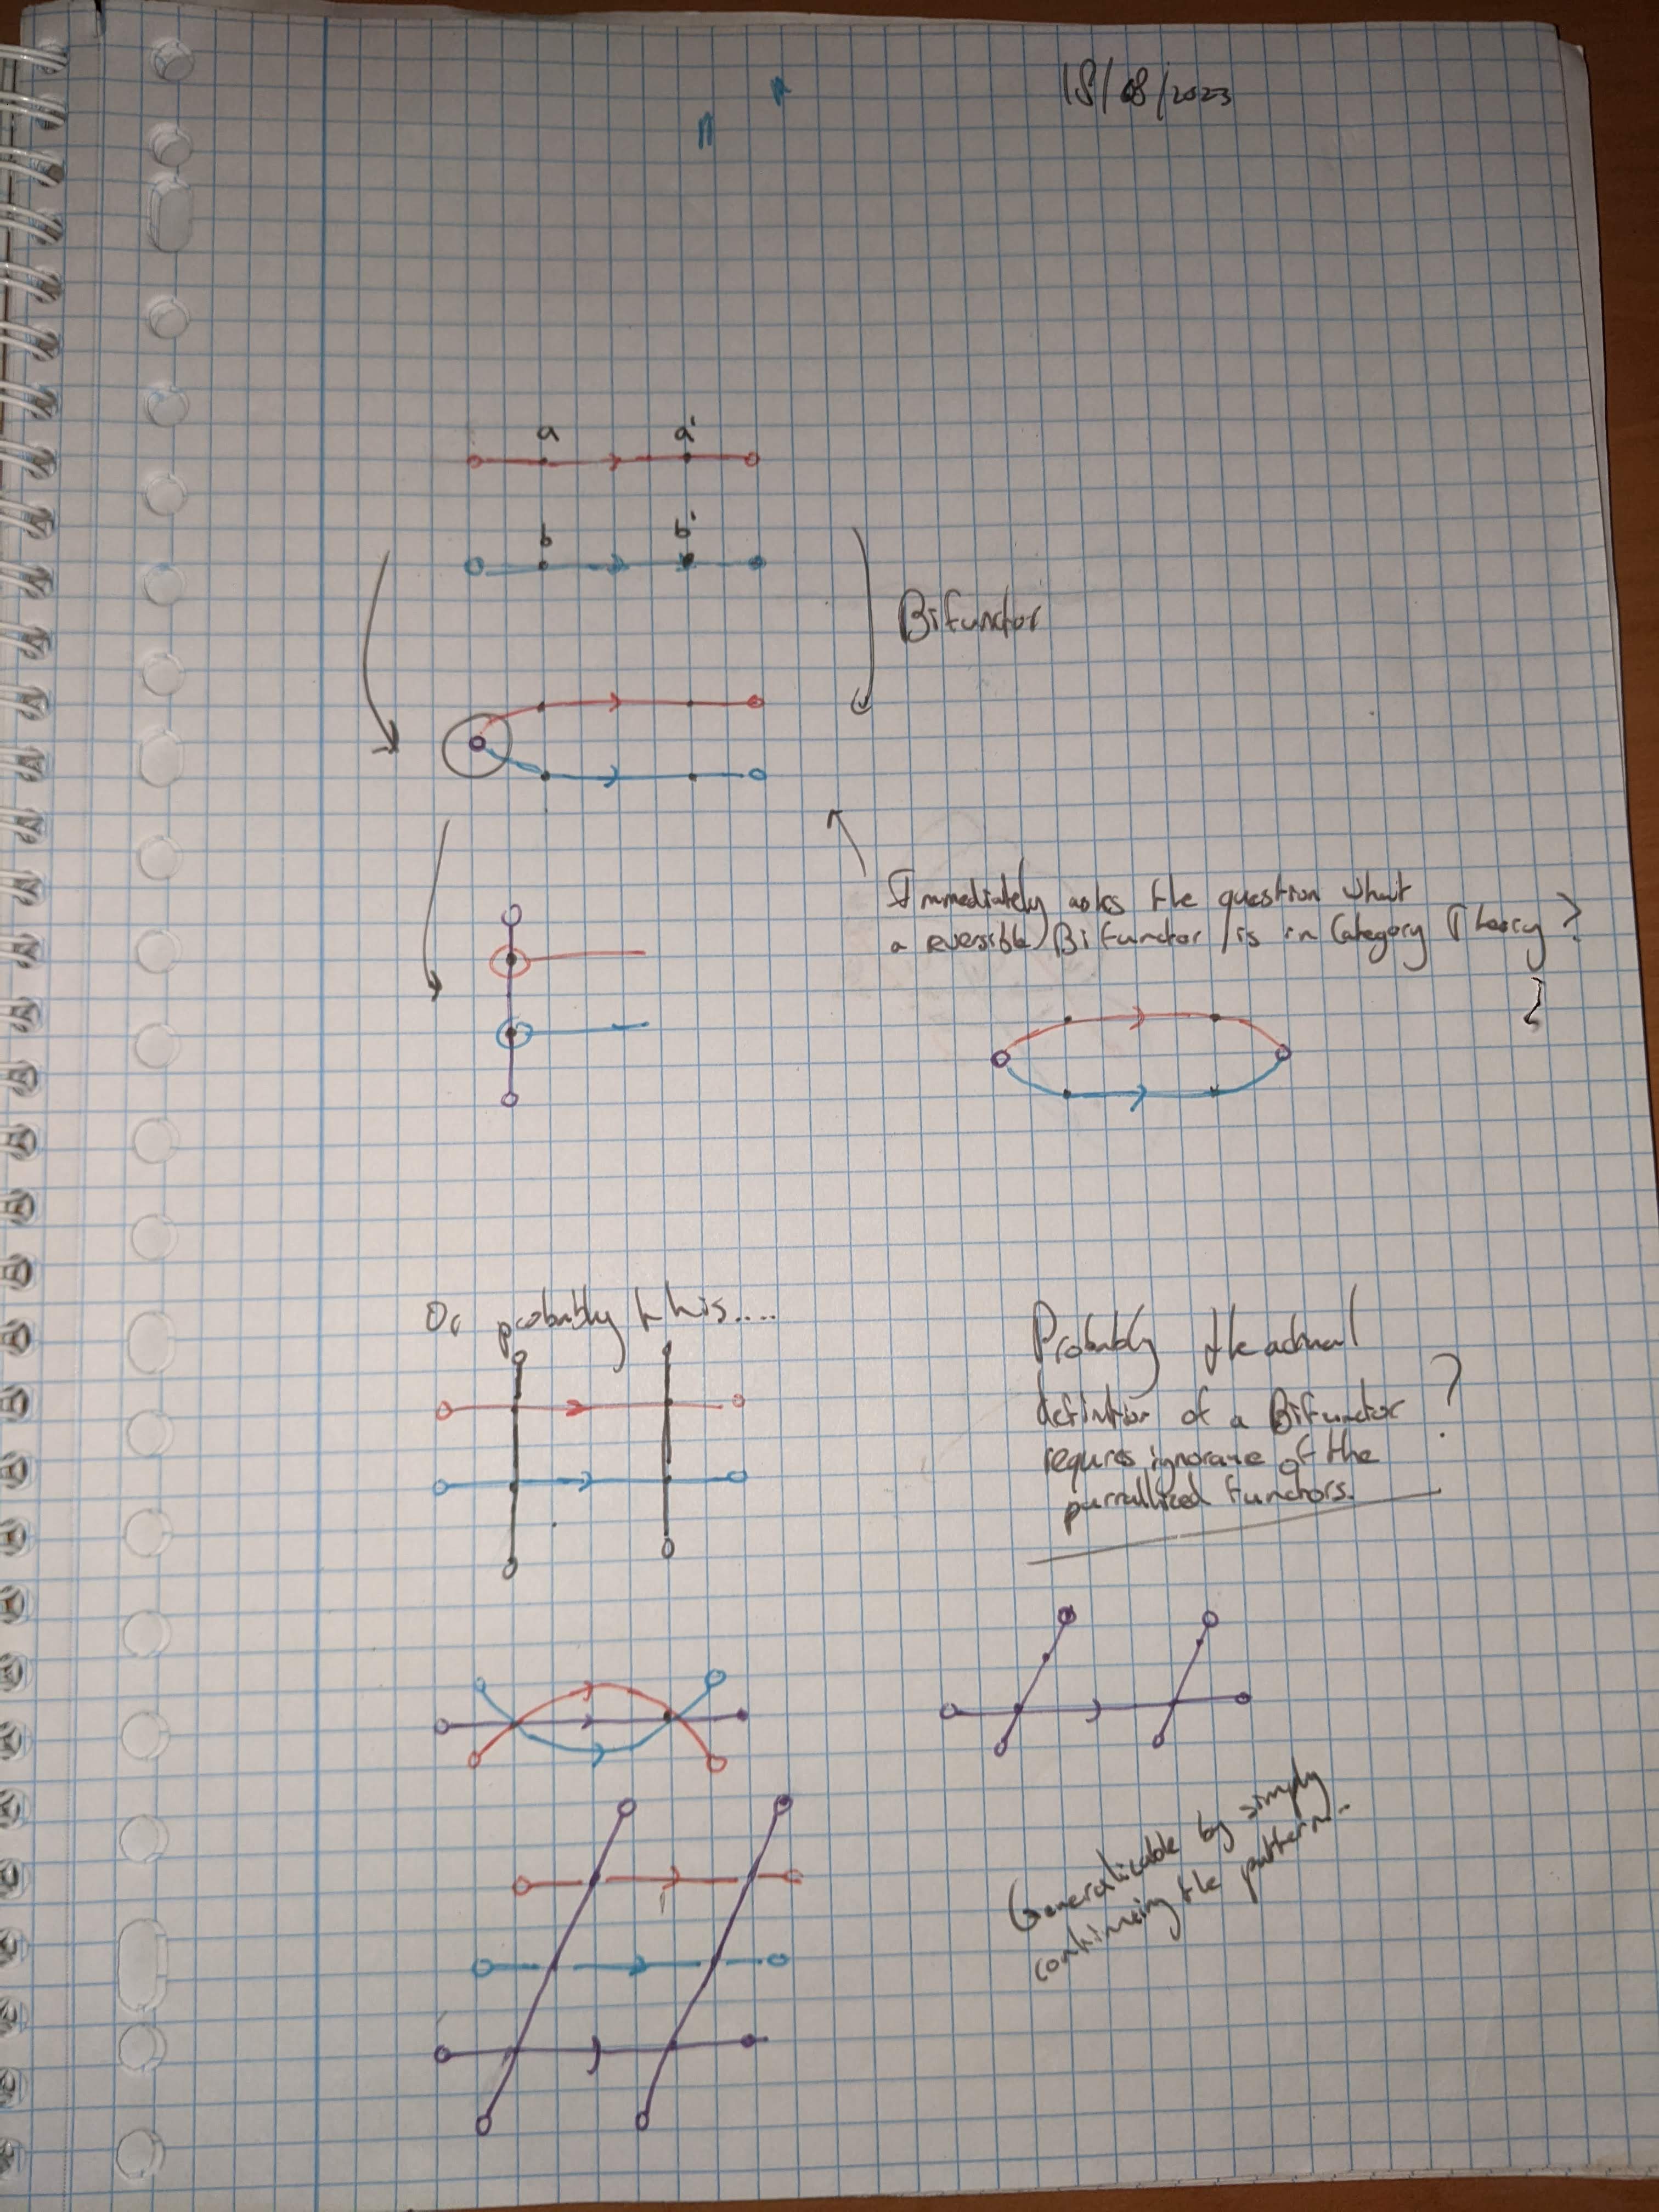 18/08/2023
a a'
b b'
Bifunctor
Immediately asks the question what
a reversible Bifunctor is in Category Theory?
Or probably this....
Probably the actual
definition of a Bifunctor ?
requires ignorance of the
parrallized functors.
Generalicable by simply
continueing the pattern.